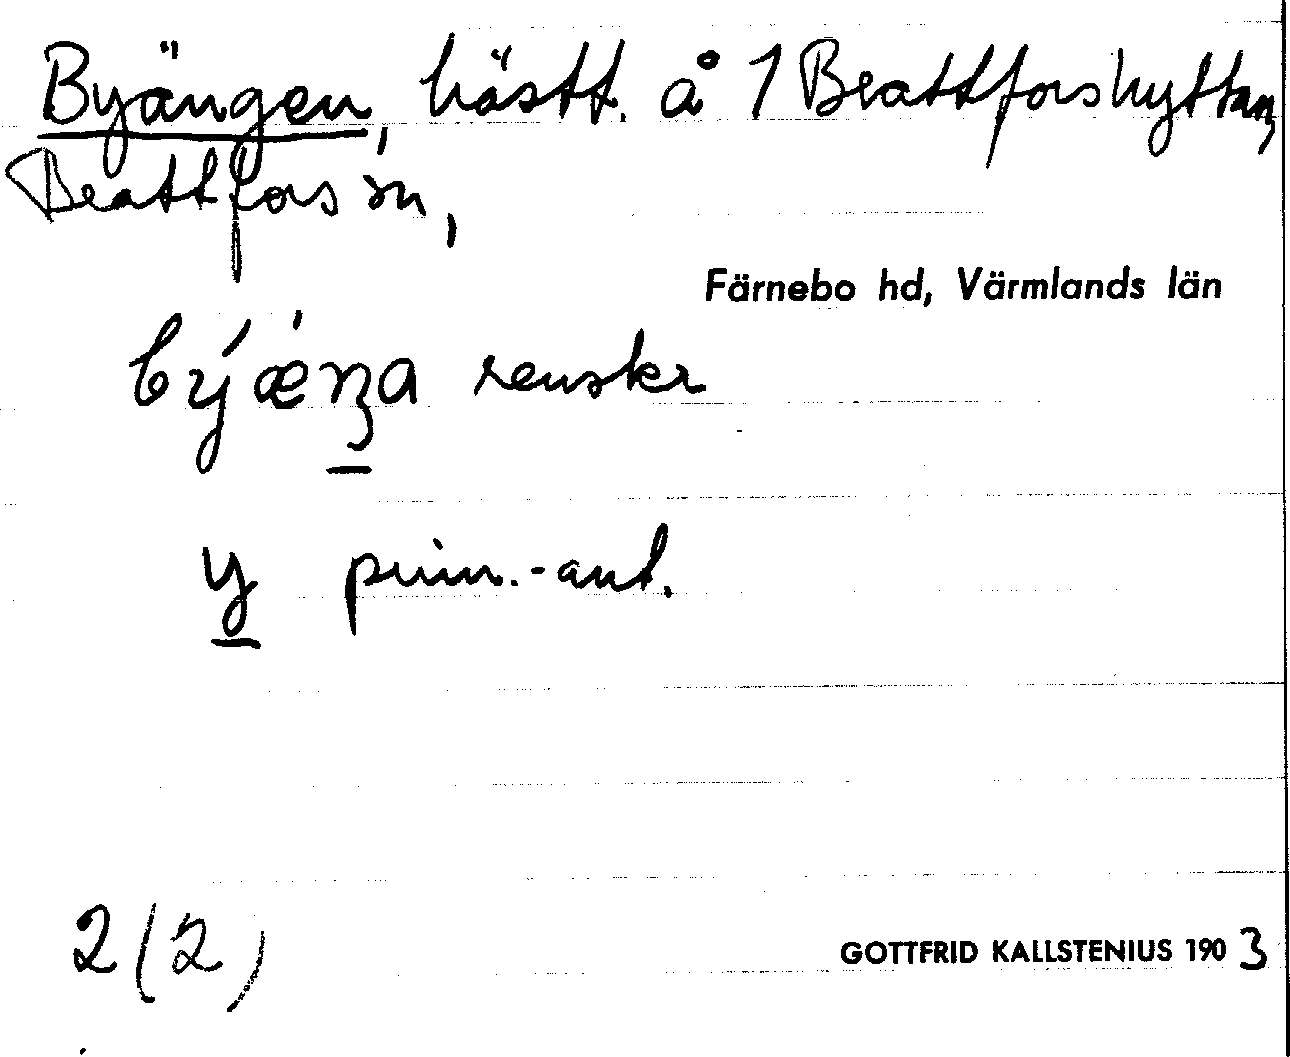 Byängen, hästt. å 1 Beattforshyttan,
Beattfors sn,
Färnebo hd, Värmlands län
býǽŋa renskr
y prim.-ant.
2(2)
GOTTFRID KALLSTENIUS 1903